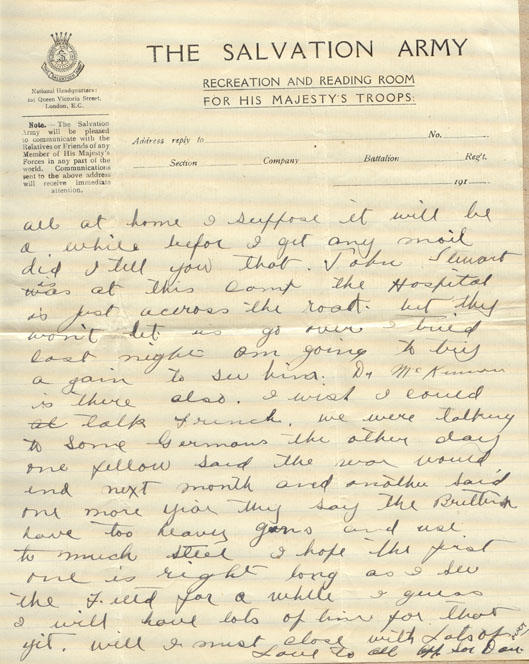 THE SALVATION ARMY
RECREATION AND READING ROOM
FOR HIS MAJESTY'S TROOPS.
National Headquarters:
101 Queen Victoria Street,
London, E.C.
Note.—The Salvation
Army will be pleased
to communicate with the
Relatives or Friends of any
Member of His Majesty's
Forces in any part of the
world. Communications
sent to the above address
will receive immediate
attention.
Address reply to No.
Section Company Battalion Reg't.
191
all at home I suppose it will be
a while befor I get any mail
did I tell you that. John Stewart
was at this camp the Hospital
is just accross the road. but they
won't let us go over I tried
last night am going to try
a gain to see him. Dr McKinnon
is there also. I wish I could
talk French. we were talking
to some Germans the other day
one fellow said the war would
end next month and another said
one more year they say the Brittish
have too heavy guns and use
to much steel I hope the first
one is right long as I see
the Field for a while I guess
I will have lots of time for that
yit. will I must close with Lots of
Love to all